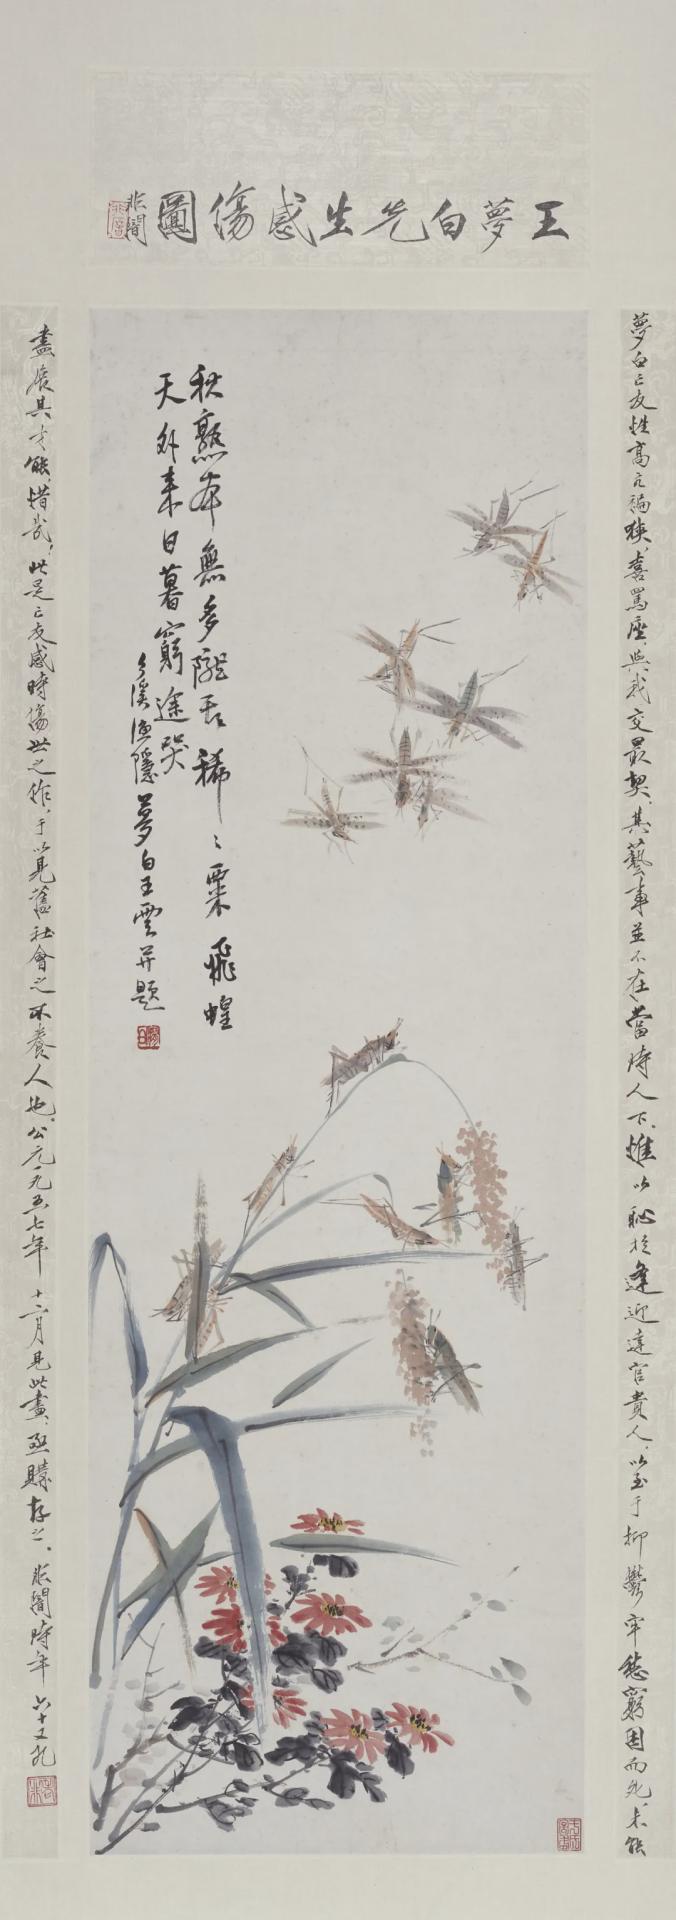 王夢白先生感傷圖
非闇
夢白亡友性高亢褊狹，喜罵座，與我交最契，其藝事並不在當時人下，惟以恥於逢迎達官貴人，以至于抑鬱牢愁窮困而死，未能
秋熟本無多隴畝稀稀粟飛蝗
天外來日暮窮途哭
漁隱夢白王雲并題
盡展其才能，惜哉！此是亡友感時傷世之作，于以見舊社會之不養人也，公元一九五七年十二月見此畫，亟購存之，非闇時年六十又九